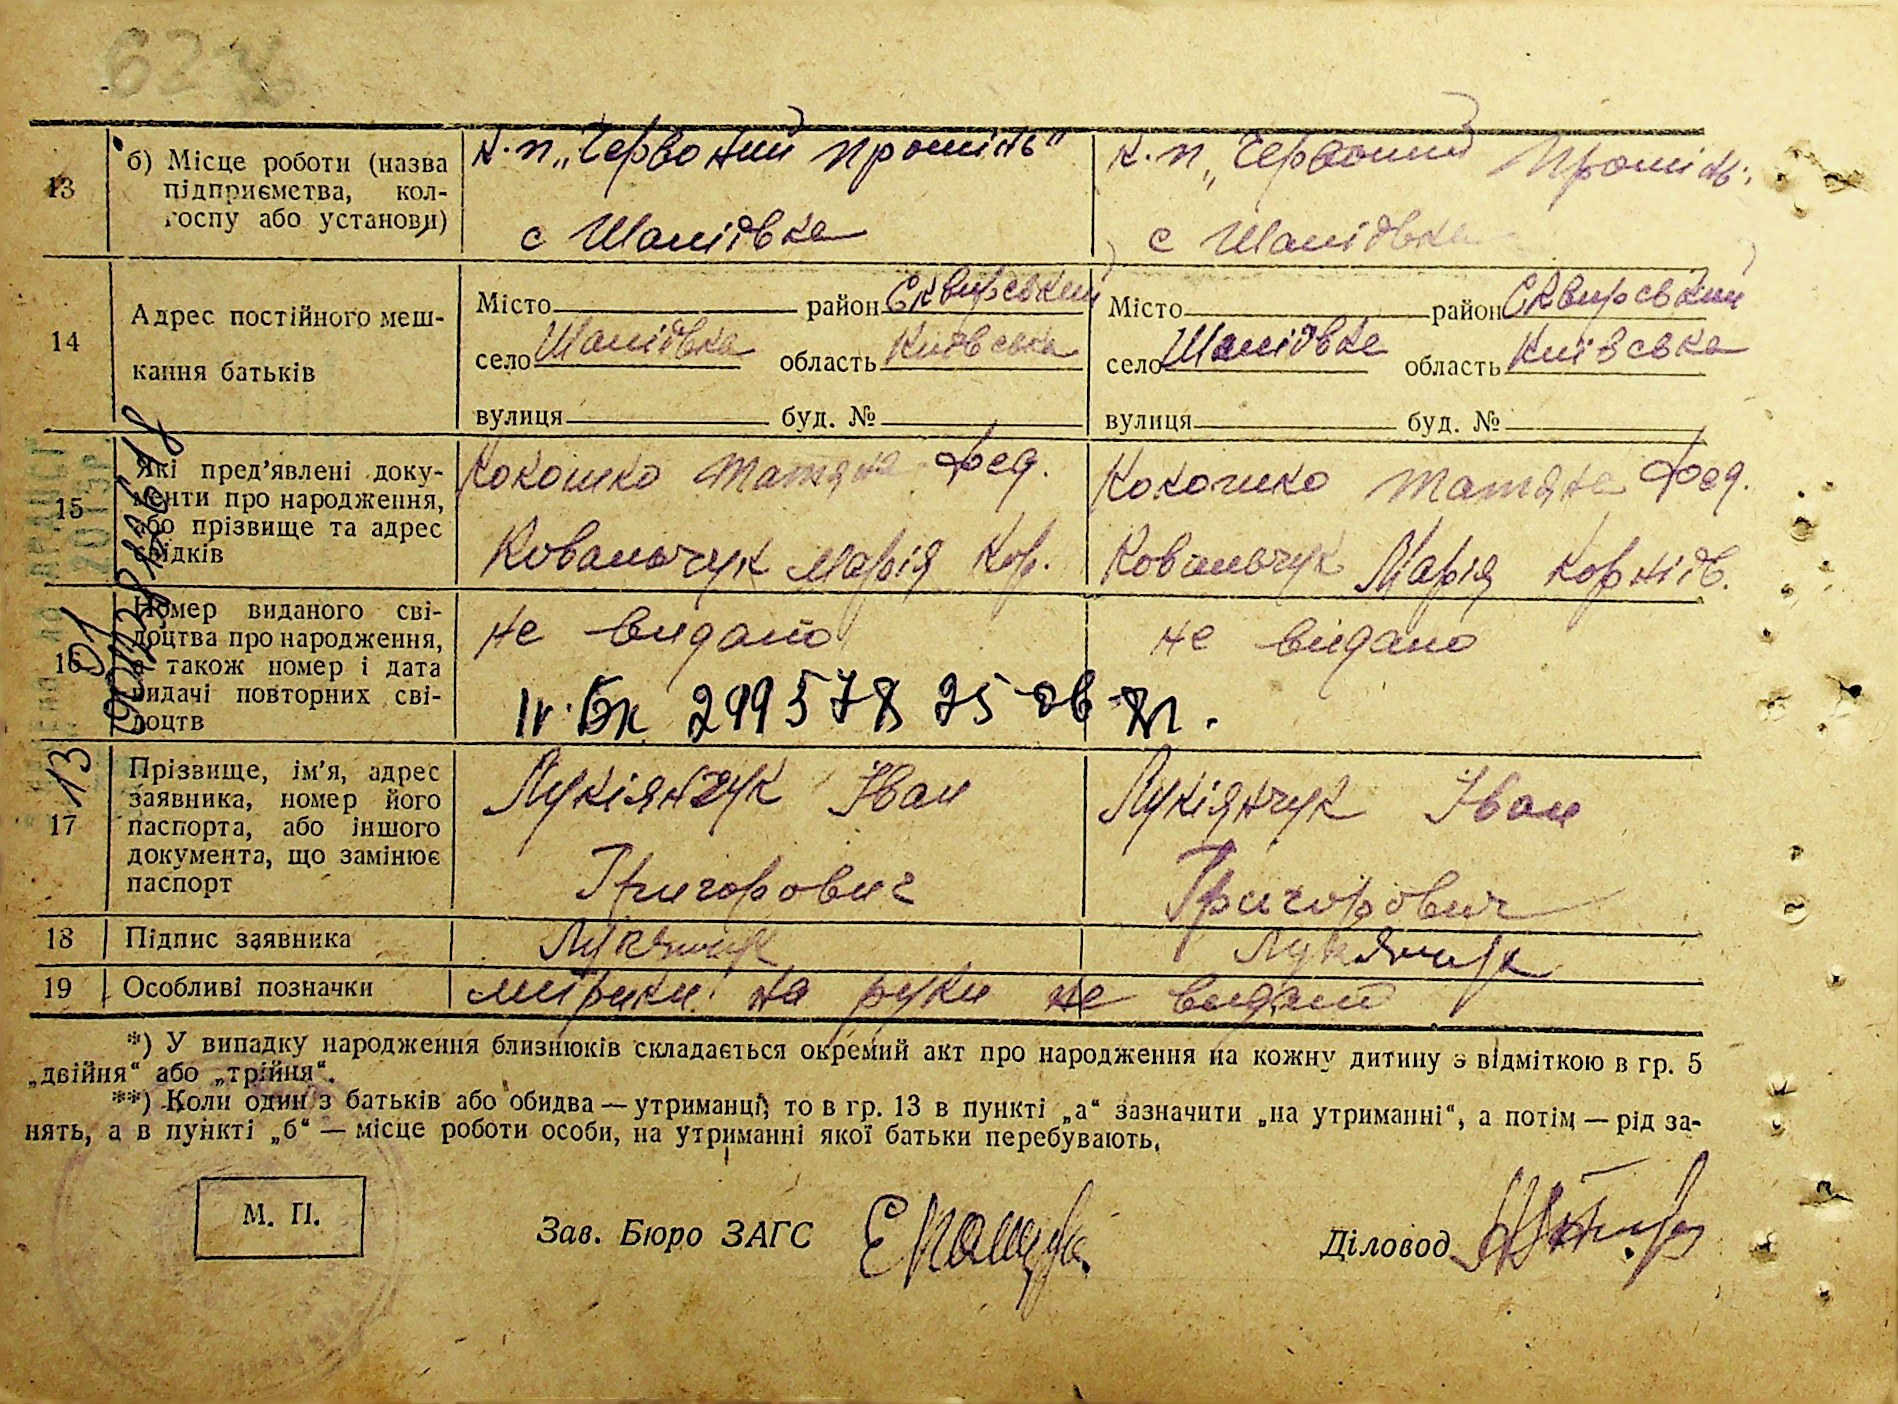 13
б) Місце роботи (назва
підприємства, кол-
госпу або установи)
к.п „Червоний промінь"
с Шаліївка
к.п „Червоний Промінь"
с Шаліївка
14
Адрес постійного меш-
кання батьків
Місто район Сквирський
село Шаліївка область Київська
вулиця буд. №
Місто район Сквирський
село Шаліївка область Київська
вулиця буд. №
15
Які пред'явлені доку-
менти про народження,
або прізвище та адрес
свідків
Кокошко Татяна Фед.
Ковальчук Марія Кор.
Кокошко Татяна Фед.
Ковальчук Марія Корніїв.
16
Номер виданого сві-
доцтва про народження,
а також номер і дата
видачі повторних сві-
доцтв
не видано
не видано
299578 25
17
Прізвище, ім'я, адрес
заявника, номер його
паспорта, або іншого
документа, що замінює
паспорт
Лукіянчук Іван
Григорович
Лукіянчук Іван
Григорович
18
Підпис заявника
Лукянчук
Лукянчук
19
Особливі позначки
на руки не видані
*) У випадку народження близнюків складається окремий акт про народження на кожну дитину з відміткою в гр. 5
„двійня“ або „трійня“.
**) Коли один з батьків або обидва — утриманці, то в гр. 13 в пункті „а“ зазначити „на утриманні“, а потім — рід за-
нять, а в пункті „б“ — місце роботи особи, на утриманні якої батьки перебувають.
М. П.
Зав. Бюро ЗАГС
Діловод